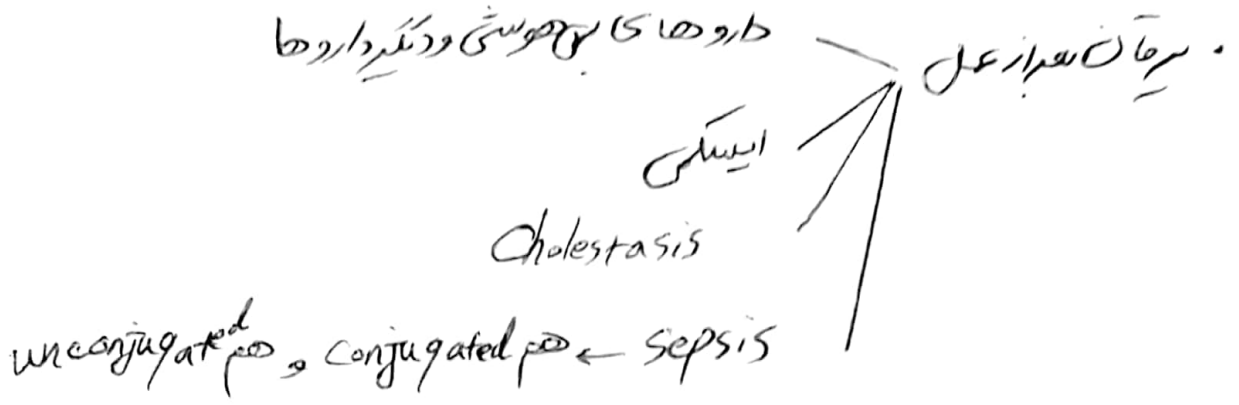 . یرقان بعد از عمل
داروهای بیهوشی و دیگر داروها
ایسکمی
Cholestasis
sepsis ← هم conjugated و هم unconjugated